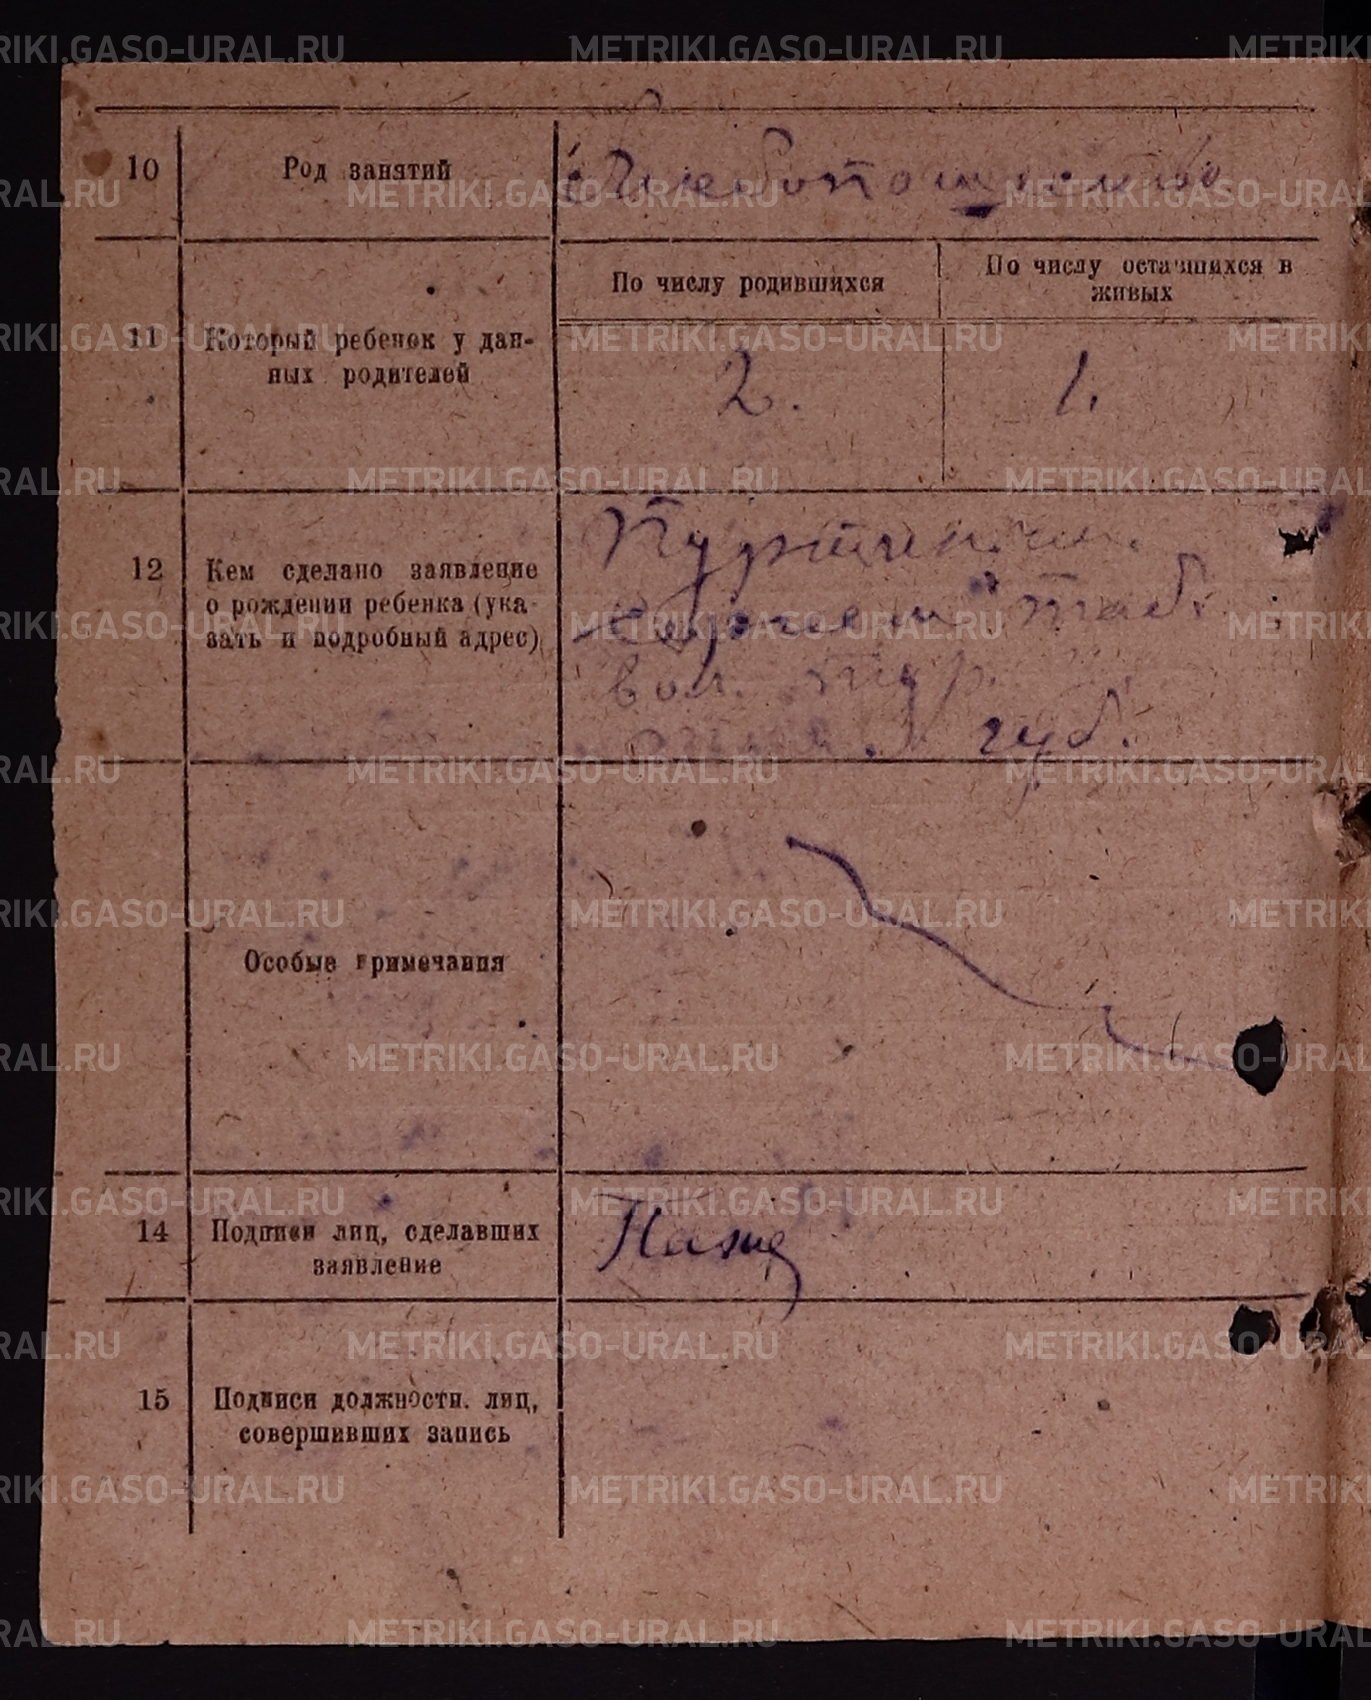 10 Род занятий Хлебопашество
11 Который ребенок у дан-
ных родителей
По числу родившихся
По числу оставшихся в
живых
2. 1.
12 Кем сделано заявление
о рождении ребенка (ука-
зать и подробный адрес)
Таб.
вол. Тур. у.
губ.
Особые примечания
14 Подписи лиц, сделавших
заявление
15 Подписи должностн. лиц,
совершивших запись
METRIKI.GASO-URAL.RU